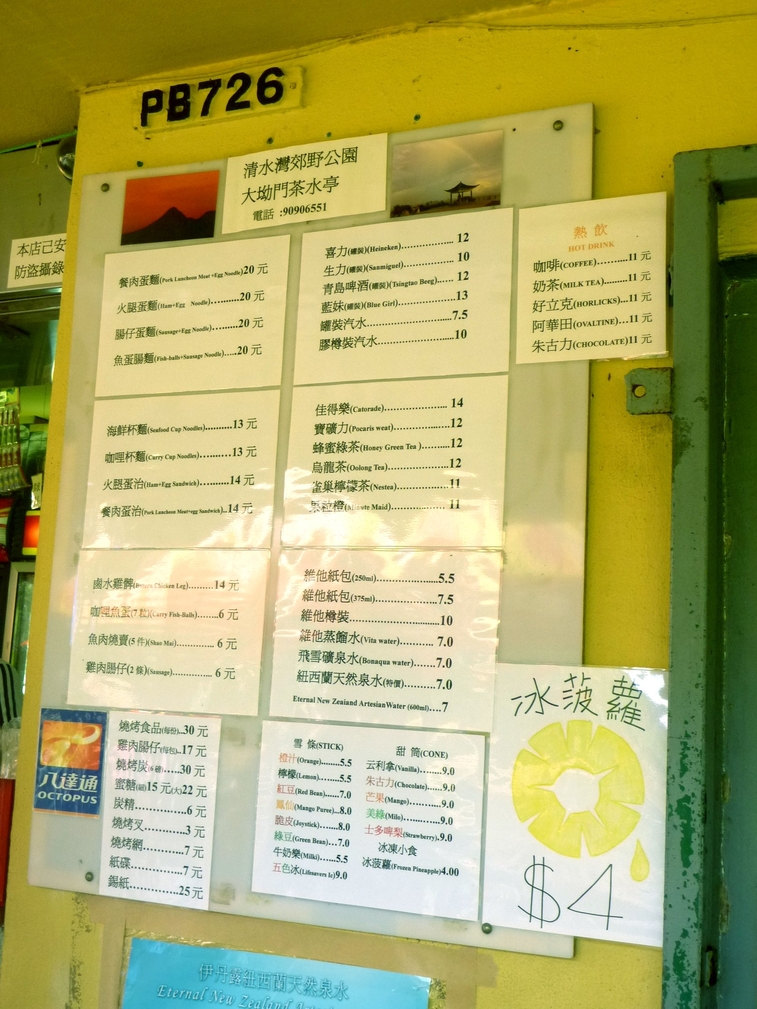 PB726
清水灣郊野公園
大坳門茶水亭
電話 :90906551
本店己安
防盜攝錄
餐肉蛋麵(Pork Luncheon Meat +Egg Noodle)20 元
火腿蛋麵(Ham+Egg Noodle)..........20 元
腸仔蛋麵(Sausage+Egg Noodle)......20 元
魚蛋腸麵(Fish-balls+Sausage Noodle).....20 元
喜力(罐裝)(Heineken)................ 12
生力(罐裝)(Sanmiguel)............... 10
青島啤酒(罐裝)(Tsingtao Beeg)..... 12
藍妹(罐裝)(Blue Girl)................13
罐裝汽水..........................7.5
膠樽裝汽水.......................10
熱 飲
HOT DRINK
咖啡(COFFEE)..........11 元
奶茶(MILK TEA)........11 元
好立克(HORLICKS)...11 元
阿華田(OVALTINE)...11 元
朱古力(CHOCOLATE)11 元
海鮮杯麵(Seafood Cup Noodles).......13 元
咖哩杯麵(Curry Cup Noodles).........13 元
火腿蛋治(Ham+Egg Sandwich).........14 元
餐肉蛋治(Pork Luncheon Meat+egg Sandwich)..14 元
佳得樂(Catorade).................. 14
寶礦力(Pocaris weat)..............12
蜂蜜綠茶(Honey Green Tea )........12
烏龍茶(Oolong Tea)................ 12
雀巢檸檬茶(Nestea)................ 11
果粒橙(Minute Maid)............... 11
鹵水雞髀(Chicken Leg).........14 元
咖哩魚蛋(7 粒)(Curry Fish-Balls).....6 元
魚肉燒賣(5 件)(Shao Mai)............ 6 元
雞肉腸仔(2 條)(Sausage)............. 6 元
維他紙包(250ml)....................5.5
維他紙包(375ml)....................7.5
維他樽裝..........................10
維他蒸餾水(Vita water)........... 7.0
飛雪礦泉水(Bonaqua water)......7.0
紐西蘭天然泉水(特價)........... 7.0
Eternal New Zeaiand ArtesianWater (600ml)....7
八達通
OCTOPUS
燒烤食品(每份)..30 元
雞肉腸仔(每包)..17 元
燒烤炭.....30 元
蜜糖15 元(大)22 元
炭精...............6 元
燒烤叉............3 元
燒烤網............7 元
紙碟...............7 元
錫紙..............25 元
雪 條(STICK)
橙汁(Orange)............5.5
檸檬(Lemon)............5.5
紅豆(Red Bean)........7.0
鳳仙(Mango Puree)...8.0
脆皮(Joystick)..........8.0
綠豆(Green Bean)....7.0
牛奶樂(Milki)........5.5
五色冰(Lifesavers Ie)9.0
甜 筒(CONE)
云利拿(Vanilla).......9.0
朱古力(Chocolate)....9.0
芒果(Mango)...........9.0
美綠(Milo)..............9.0
士多啤梨(Strawberry).9.0
冰凍小食
冰菠蘿(Frozen Pineapple)4.00
冰菠蘿
$4
伊丹露紐西蘭天然泉水
Eternal New Zealand